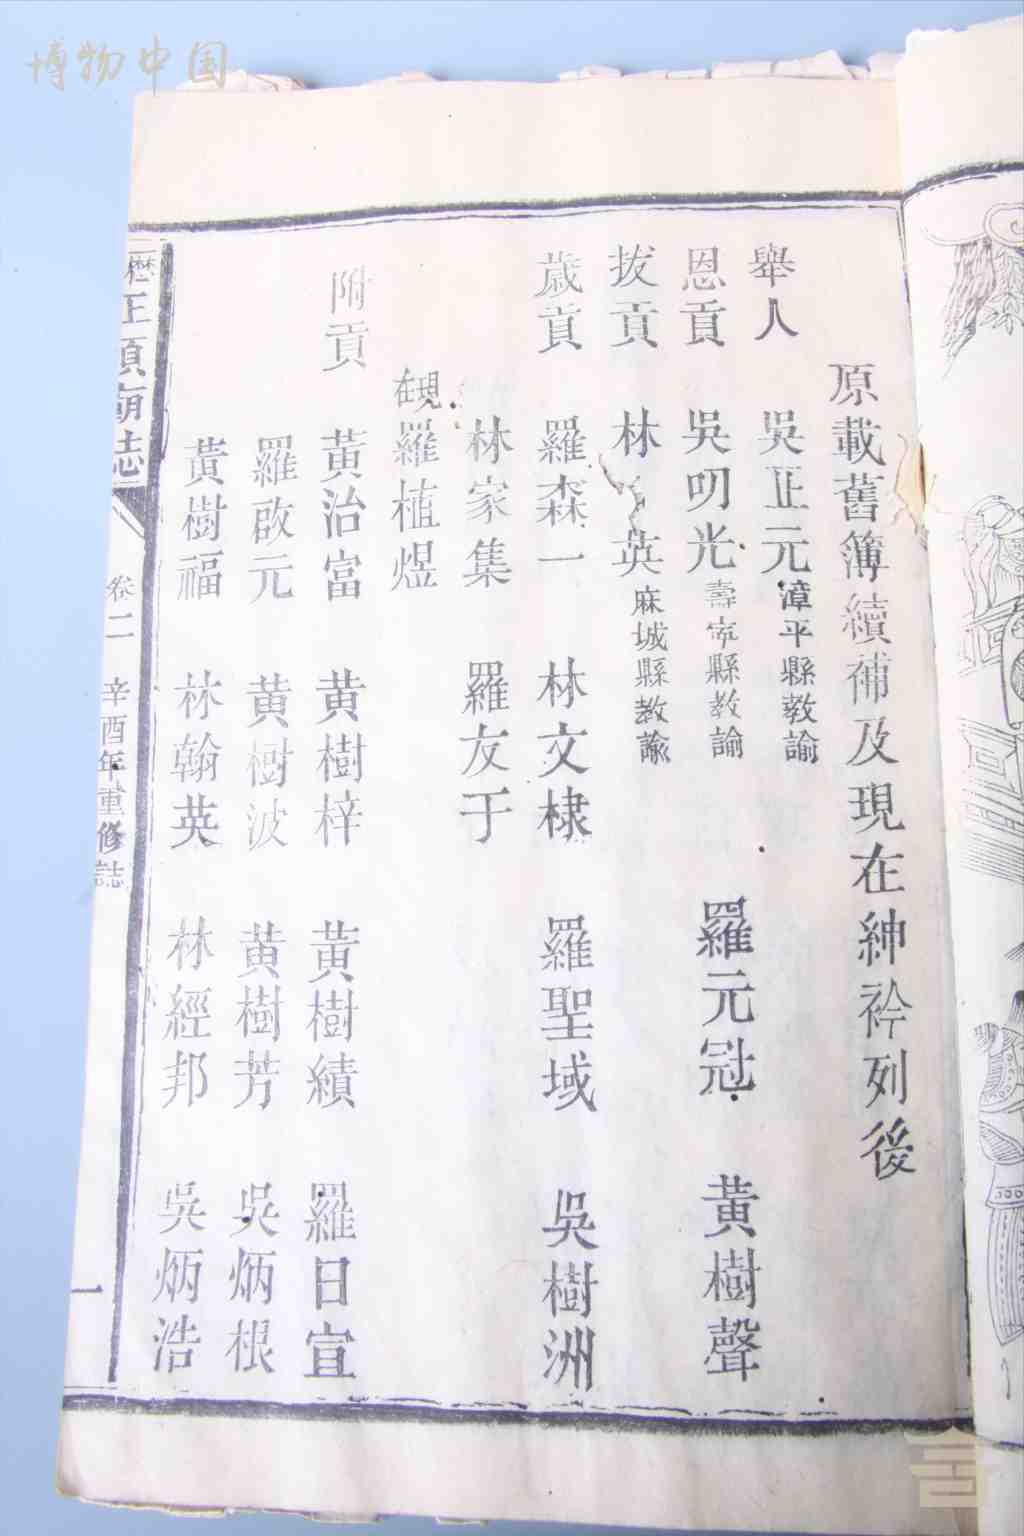 博物中国
原載舊簿續補及現在紳衿列後
舉人 吳正元 漳平縣教諭
恩貢 吳叨光 壽寧縣教諭 羅元冠 黃樹聲
拔貢 林 英 麻城縣教諭
歲貢 羅森一 林文棣 羅聖域 吳樹洲
林家集 羅友于
現在 羅植煜
附貢 黃治富 黃樹梓 黃樹績 羅日宣
羅啟元 黃樹波 黃樹芳 吳炳根
黃樹福 林翰英 林經邦 吳炳浩
正頂廟誌 卷二 辛酉年重修誌 一